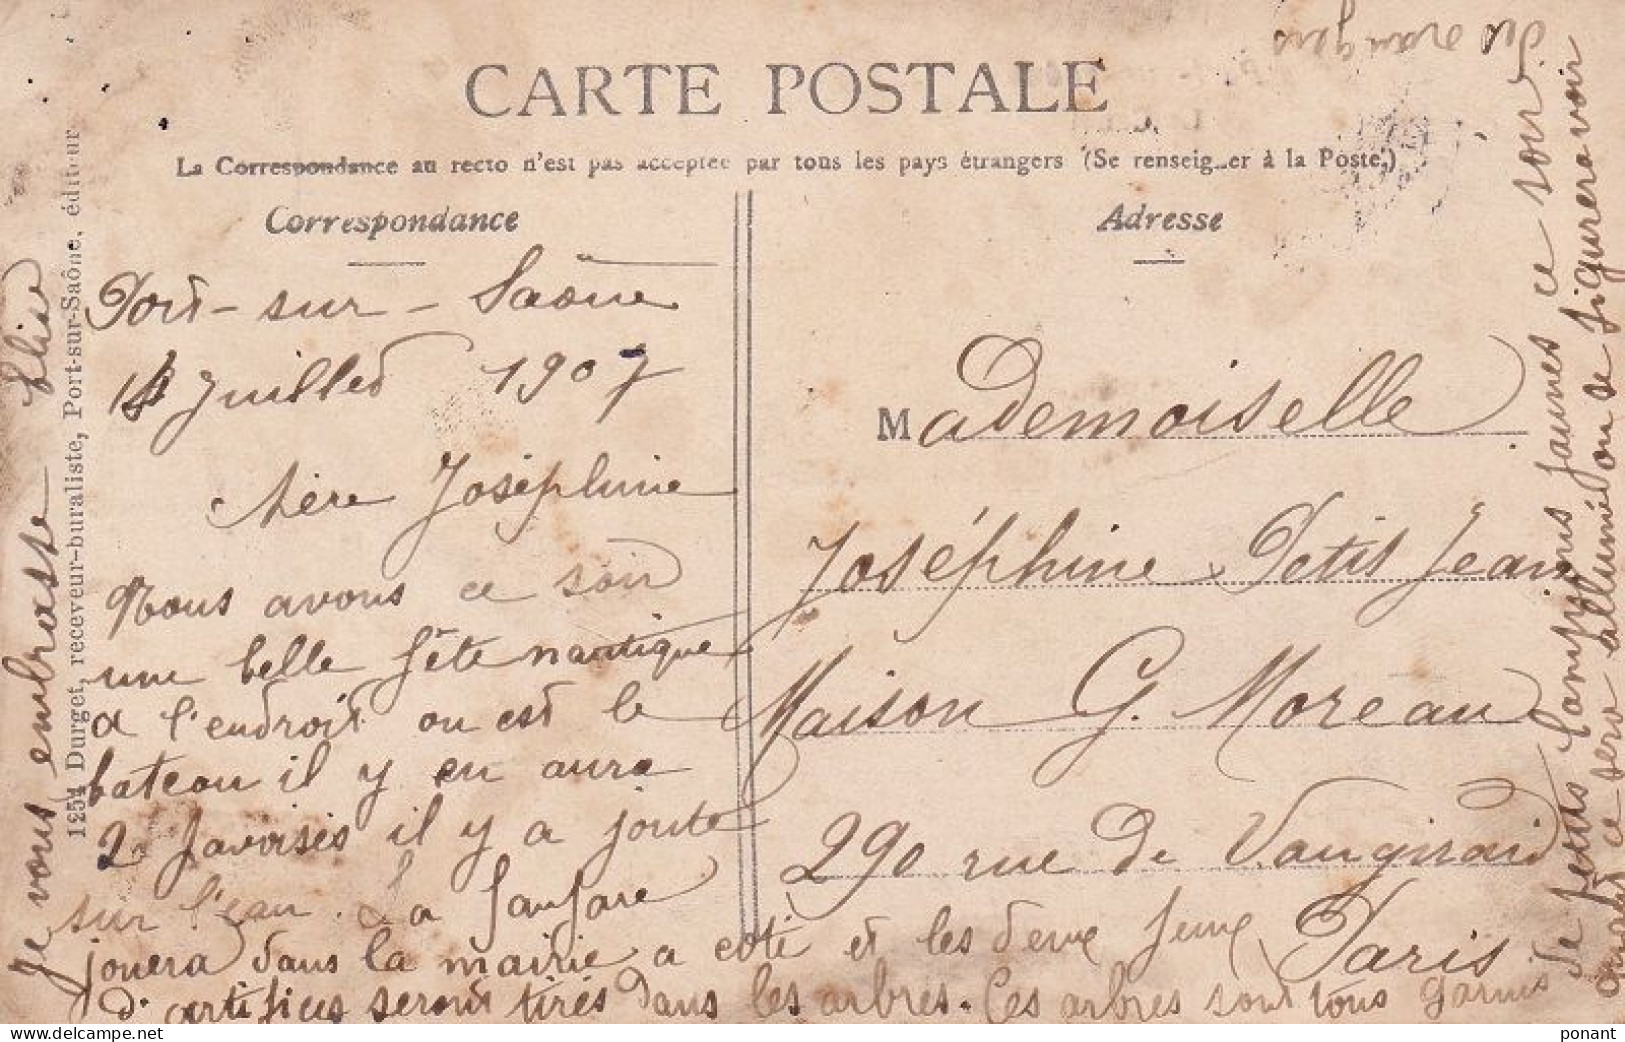 CARTE POSTALE
La Correspondance au recto n'est pas acceptée par tous les pays étrangers (Se renseigner à la Poste.)
Correspondance
Adresse
Port-sur-Saône
14 Juillet 1907
chère Joséphine
Nous avons ce soir
une belle fête nautique
a l'endroit ou est le
bateau il y en aura
2 favorisés il y a joute
sur l'eau. La fanfare
jouera dans la mairie a coté et les deux feux
d'artifices seront tirés dans les arbres. Ces arbres sont tous garnis
de petits lampions jaunes ce soir
quand ce sera allumé on se figurera voir
des orangers
Je vous embrasse
Mademoiselle
Joséphine Petit Jean
Maison G. Moreau
290 rue de Vaugirard
Paris
1254 Durget, receveur-buraliste, Port-sur-Saône, éditeur
ponant